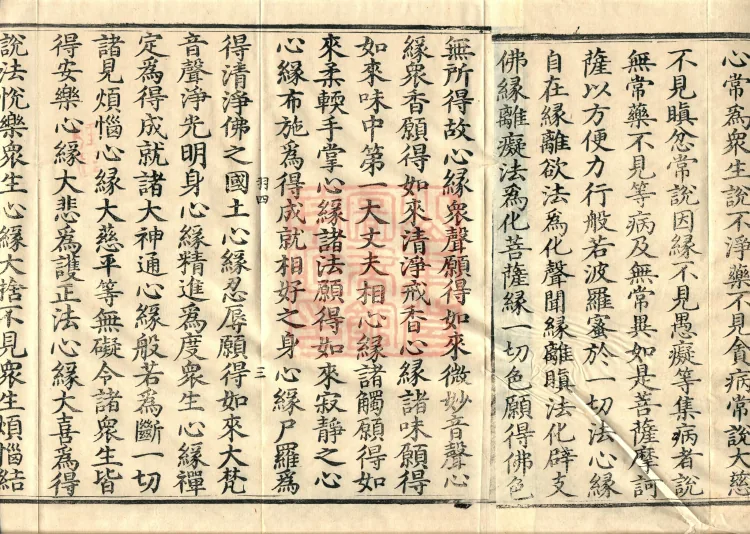 心常爲衆生說不淨藥不見貪病常說大慈
不見瞋忿常說因緣不見愚癡等集病者說
無常藥不見等病及無常異如是菩薩摩訶
薩以方便力行般若波羅蜜於一切法心緣
自在緣離欲法爲化聲聞緣離瞋法化辟支
佛緣離癡法爲化菩薩緣一切色願得佛色
無所得故心緣衆聲願得如來微妙音聲心
緣衆香願得如來清淨戒香心緣諸味願得
如來味中第一大丈夫相心緣諸觸願得如
來柔輭手掌心緣諸法願得如來寂靜之心
心緣布施爲得成就相好之身心緣尸羅爲
羽四 三
得清淨佛之國土心緣忍辱願得如來大梵
音聲淨光明身心緣精進爲度衆生心緣禪
定爲得成就諸大神通心緣般若爲斷一切
諸見煩惱心緣大慈平等無礙令諸衆生皆
得安樂心緣大悲爲護正法心緣大喜爲得
說法悅樂衆生心緣大捨不見衆生煩惱結